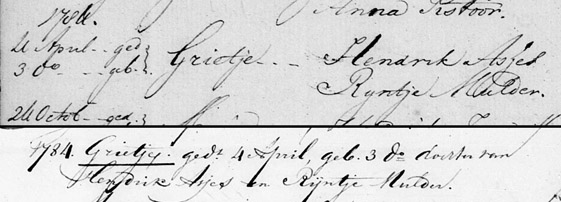 Anna Kstoor.
1784.
4 April - ged:
3 do - geb: Grietje - - Hendrik Asjes
Ryntje Mulder.
24 Octob - ged:
1784. Grietje, gedt 4 April, geb. 3 do dochter van
Hendrik Asjes en Ryntje Mulder.